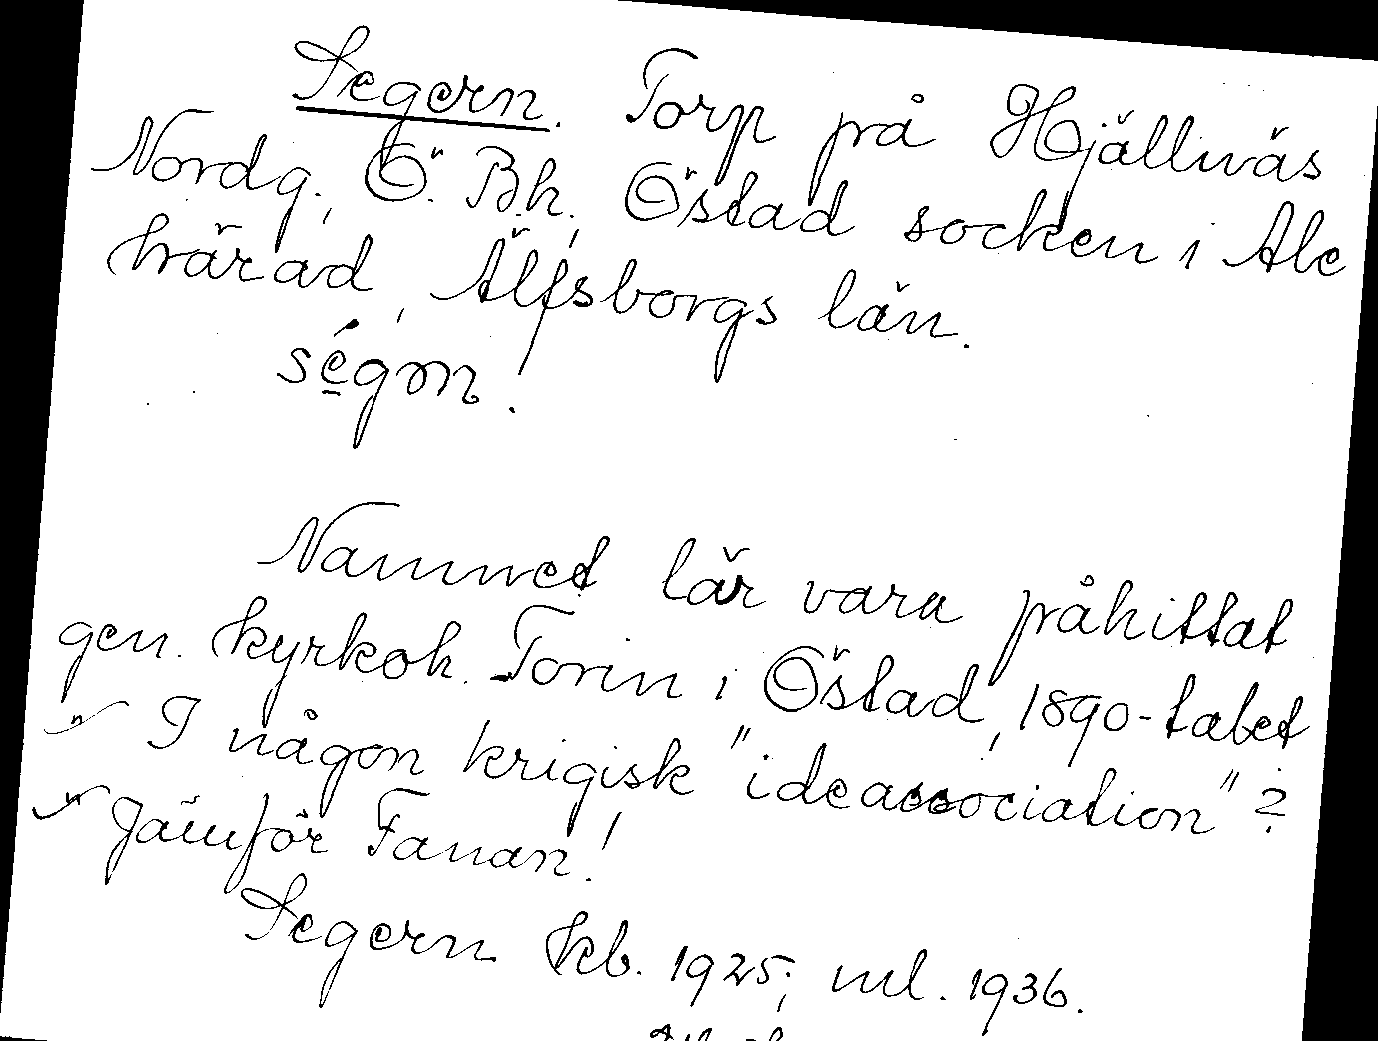 Segern. Torp på Hjällnäs
Nordg., Ö. Bh, Östad socken i Ale
härad, Älfsborgs län.
ségɷn!
Namnet lär vara påhittat
gen. kyrkoh. Torin i Östad, 1890-talet
I någon krigisk "ideassociation"?
Jämför Fanan!
Segern Kb. 1925; ml. 1936.